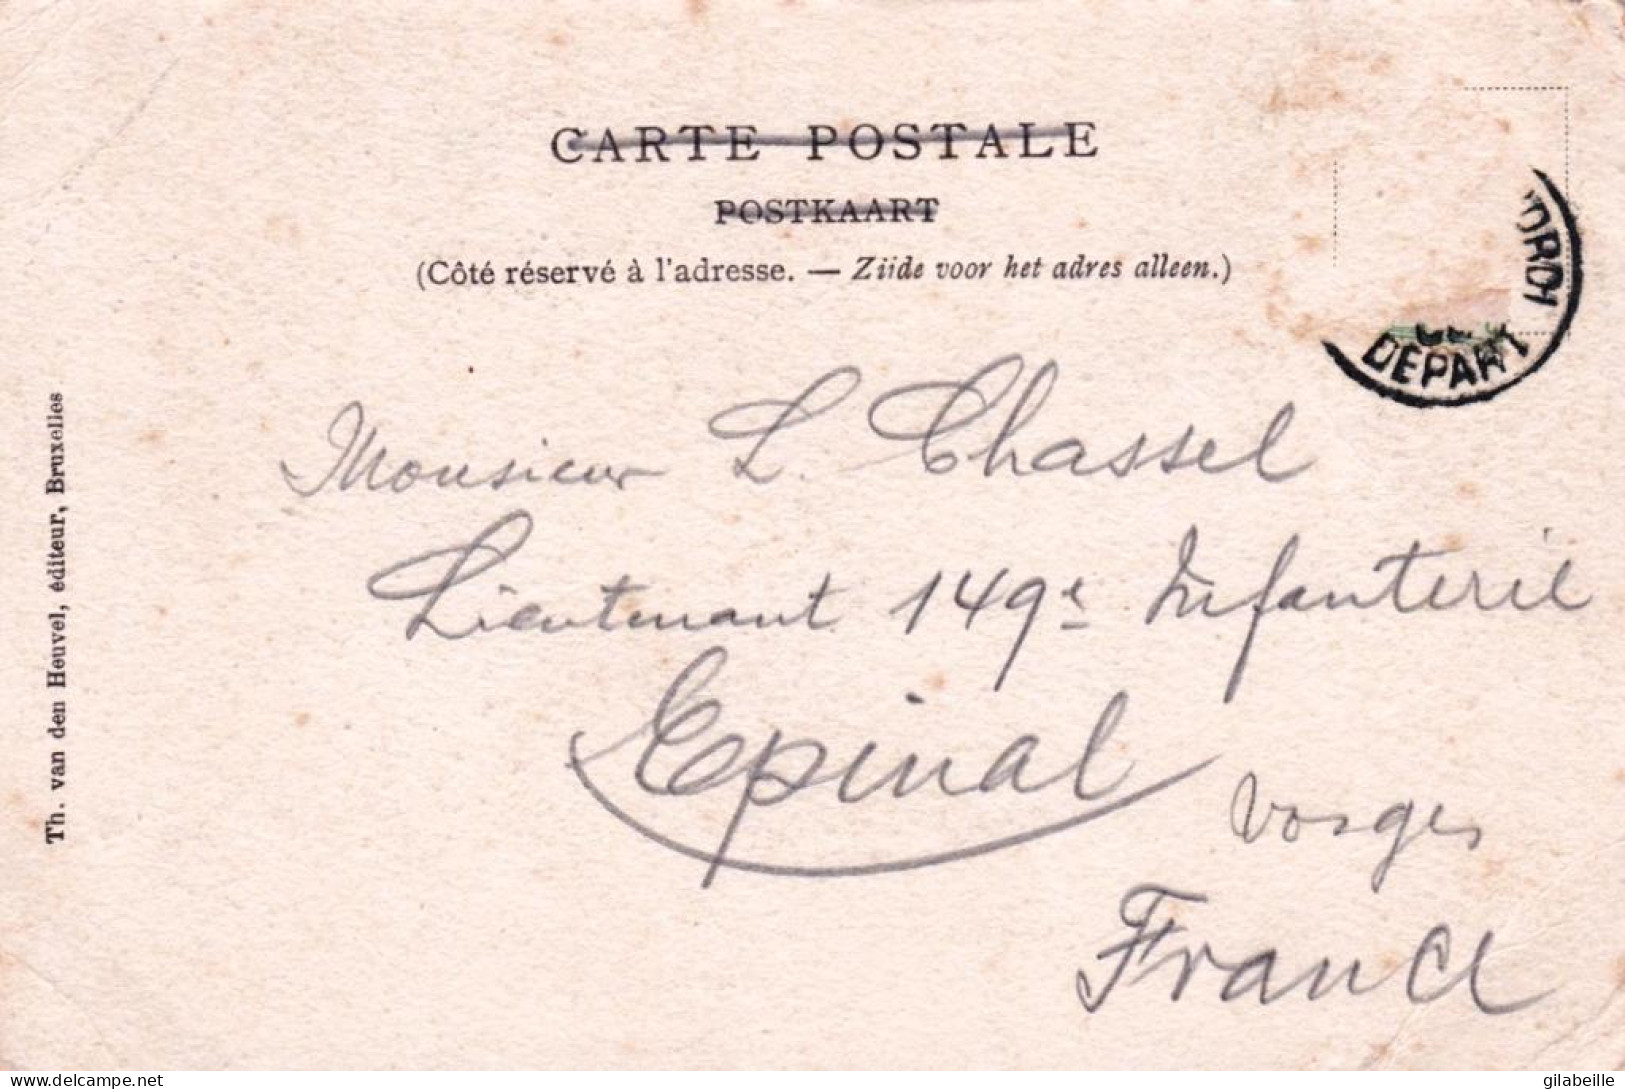 CARTE POSTALE
POSTKAART
(Côté réservé à l'adresse. — Ziide voor het adres alleen.)
DEPART
Monsieur L. Chassel
Lieutenant 149e Infanterie
Epinal
Vosges
France
Th. van den Heuvel, éditeur, Bruxelles
delcampe.net
gilabeille